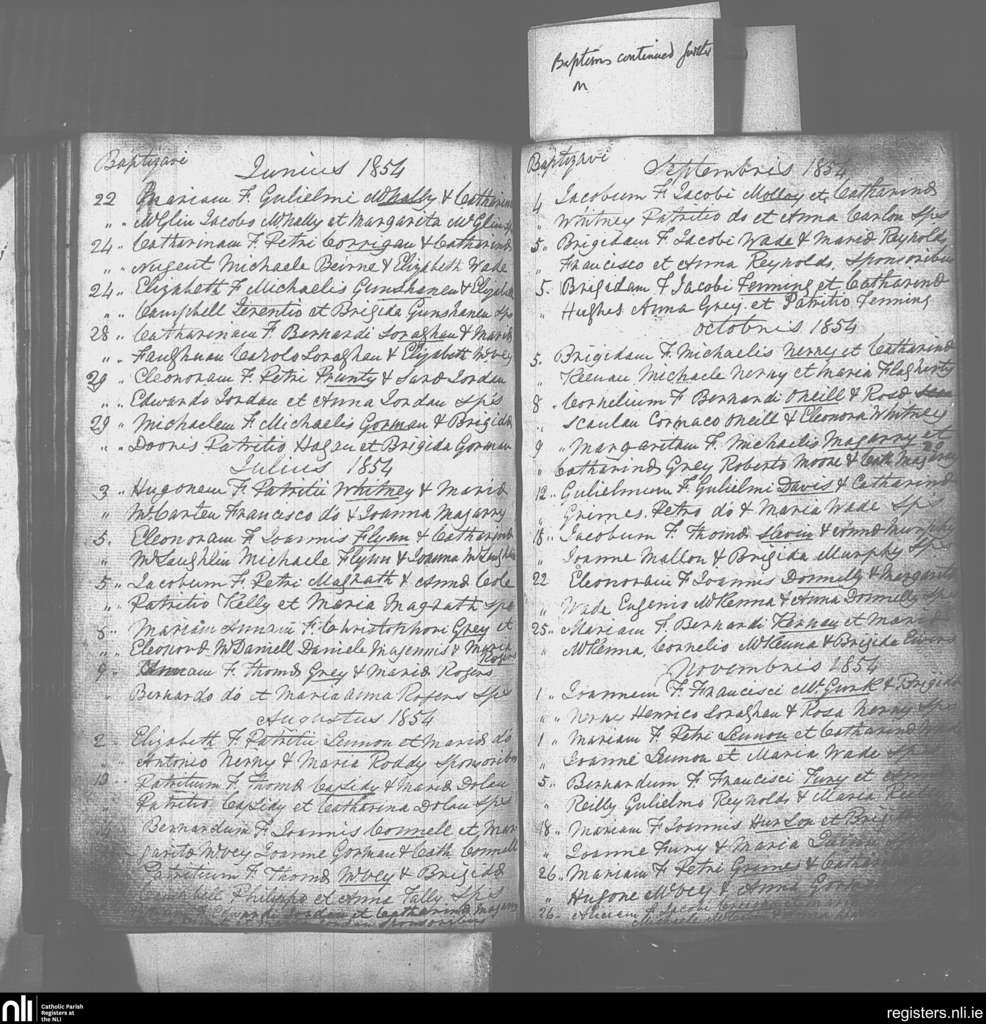 Baptisms continued further
on
Baptizavi
Junius 1854
22 Mariam F. Gulielmi McNally & Catharin
" McGlin Jacobo McNally et Margarita McGlin
24 " Catharinam F. Petri Corrigan & Catharind
" Nugent Michaele Beirne & Elizabeth Wade
24 " Elizabeth F. Michaelis Gunshanen & Elizabeth
" Campbell Terentio et Brigida Gunshanen Sps
28 " Catharinam F. Bernardi Soraghan & Maria
" Faughnan Carolo Soraghan & Elizabeth McVey
29 " Eleonoram F. Petri Prunty & Sard Jordan
" Edwardo Jordan et Anna Jordan Sps
29 " Michaelem F. Michaelis Gorman & Brigida
" Dooris Patritio Hagen et Brigida Gorman
Julius 1854
3 " Hugonem F. Patritii Whitney & Maria
" McCarten Francisco do & Joanna Magarry
5. Eleonoram F. Joannis Flynn & Catharind
McLaughlin Michaele Flynn & Joanna McLaughlin
5 " Jacobum F. Petri Magrath & Annd Cole
" Patritio Kelly et Maria Magrath Sps
8 " Mariam Annam F. Christophori Grey et
" Eleonord McDaniell Daniele Magennis & Maria
Rogers
9 " F. Thomd Grey & Marid Rogers
" Bernardo do et Maria Anna Rogers Sps
Augustus 1854
2 " Elizabeth F. Patritii Lennon et Marid do
" Antonio Nerny & Maria Roddy Sponsoribs
Patritium F. Thomd Casidy & Marid Dolan
Patritio Casidy et Catharina Dolan Sps
Bernardum F. Joannis Connell et Mar
garita McVey Joanne Gorman & Cath Connell
Patritium F. Thomd McVey & Brigidd
Campbell Philippo et Anna Tally Sps
Jordan et Catharind Magarry
Sponsoribus
Baptizavi
Septembris 1854
4 Jacobum F. Jacobi Molloy et Catharind
" Whitney Patritio do et Anna Carlon Sps
5 " Brigidam F. Jacobi Wade & Marid Reynolds
" Francisco et Anna Reynolds. Sponsoribus
5. Brigidam F. Jacobi Fenning et Catharind
" Hughes Anna Grey et Patritio Fenning
Octobris 1854
5. Brigidam F. Michaelis Nerny et Catharind
" Keenan Michaele Nerny et Maria Flagherty
8 " Cornelium F. Bernardi ONeill & Rosd
" Scanlan Cormaco ONeill & Eleonora Whitney
9 " Margaritam F. Michaelis Magarry et
" Catharind Grey Roberto Moore & Cath Magarry
12 " Gulielmum F. Gulielmi Davis & Catharind
" Grimes. Petro do & Maria Wade Sps
18 " Jacobum F. Thomd Slevin & Annd Murphy
" Joanne Mallon & Brigida Murphy Sps
22 Eleonoram F. Joannis Donnelly & Margarita
" Wade Eugenio McKenna & Anna Donnelly Sps
25 " Mariam F. Bernardi Kernan et Marid
" McKenna Cornelio McKenna & Brigida
Novembris 1854
1 " Joannem F. Francisci McGurk & Brigida
" Nerny Henrico Soraghan & Rosa Nerny Sps
1 " Mariam F. Petri Lennon et Catharind
" Joanne Lennon et Maria Wade Sps
5 " Bernardum F. Francisci Fury et
" Reilly Gulielmo Reynolds & Maria
18 " Mariam F. Joannis Hurson et Brigida
" Joanne Fury & Maria
26 " Mariam F. Petri Grimes & Catharind
" Hugone McVey & Anna Gorman
26 " Aliciam F. Jacobi
nli
Catholic Parish
Registers at
the NLI
registers.nli.ie